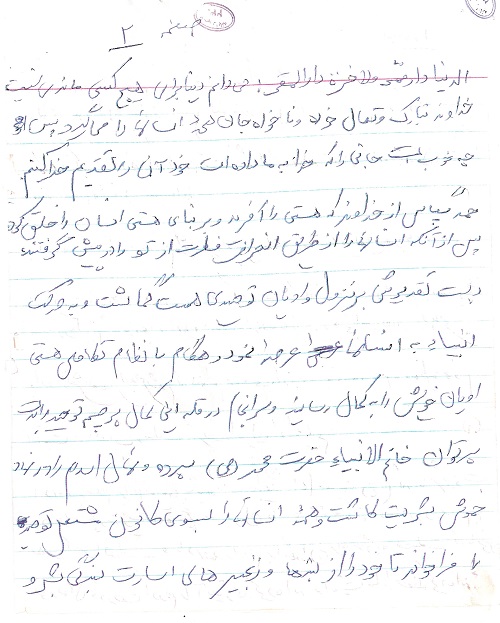 صفحه ۲
الدنیا دار ممر والاخرة دارالمقر؛ می دانم دنیا برای هیچ کسی ماندنی نیست
خداوند تبارک و تعالی خواه و ناخواه جان همه انسانها را می گیرد پس
چه خوب است جانی را که خدا به ما داده است خود آن را تقدیم خدا کنیم
حمد و سپاس از خداوند که هستی را آفرید و بر بنای هستی انسان را خلق کرد
پس از آنکه انسانها از طریق انحراف فطرت از تو را در پیش گرفتند
دست تقدیرش بر نزول ادیان توحیدی همت گماشت و به حرکت
انبیاء به انسانها عرضه نمود و هنگام با نظام تکاملی هستی
ادیان خویش را به کمال رسانید و سرانجام در قله این کمال پرچم توحید را بدست
پرتوان خاتم الانبیاء حضرت محمد (ص) سپرده و نهال اسلام را در نهاد
خویش بشریت کاشت و همه انسانها را بسوی کانون مشتعل توحید
را فراخواند تا خود را از بندها و زنجیرهای اسارت بندگی بشر و